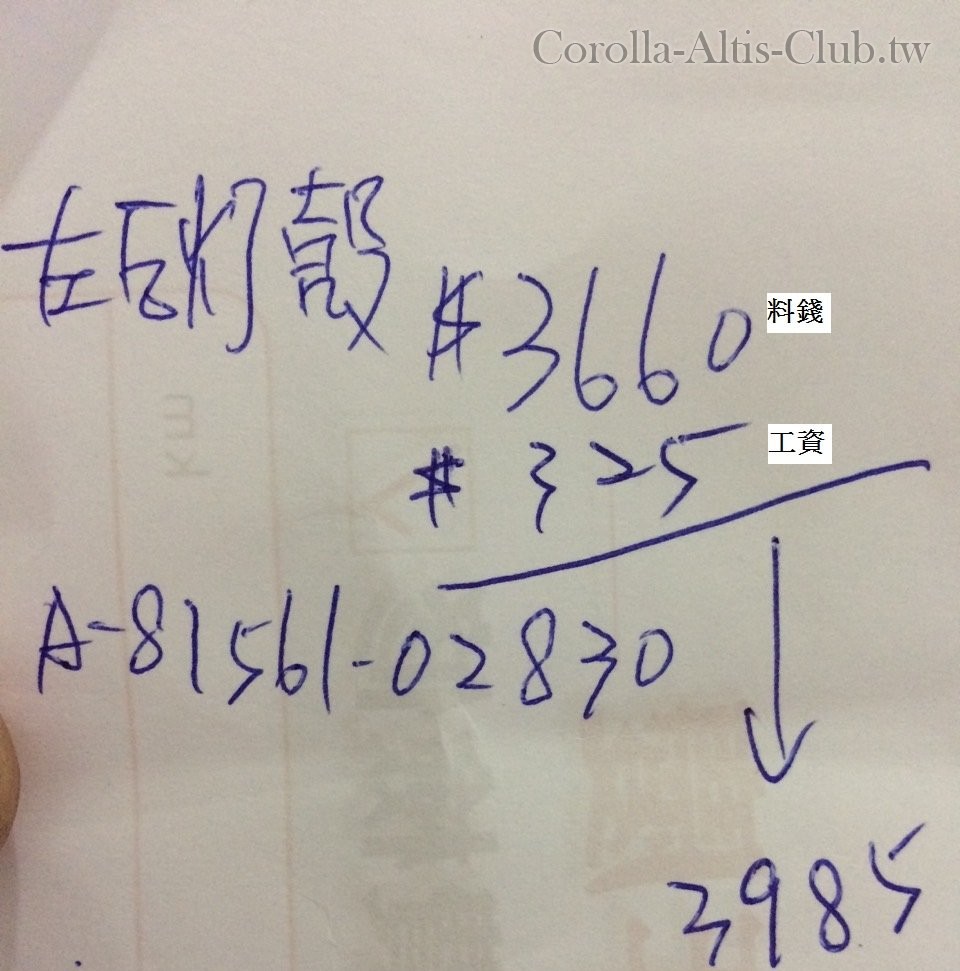 Corolla-Altis-Club.tw
左后灯殼 #3660 料錢
# 325 工資
A-81561-02830
3985